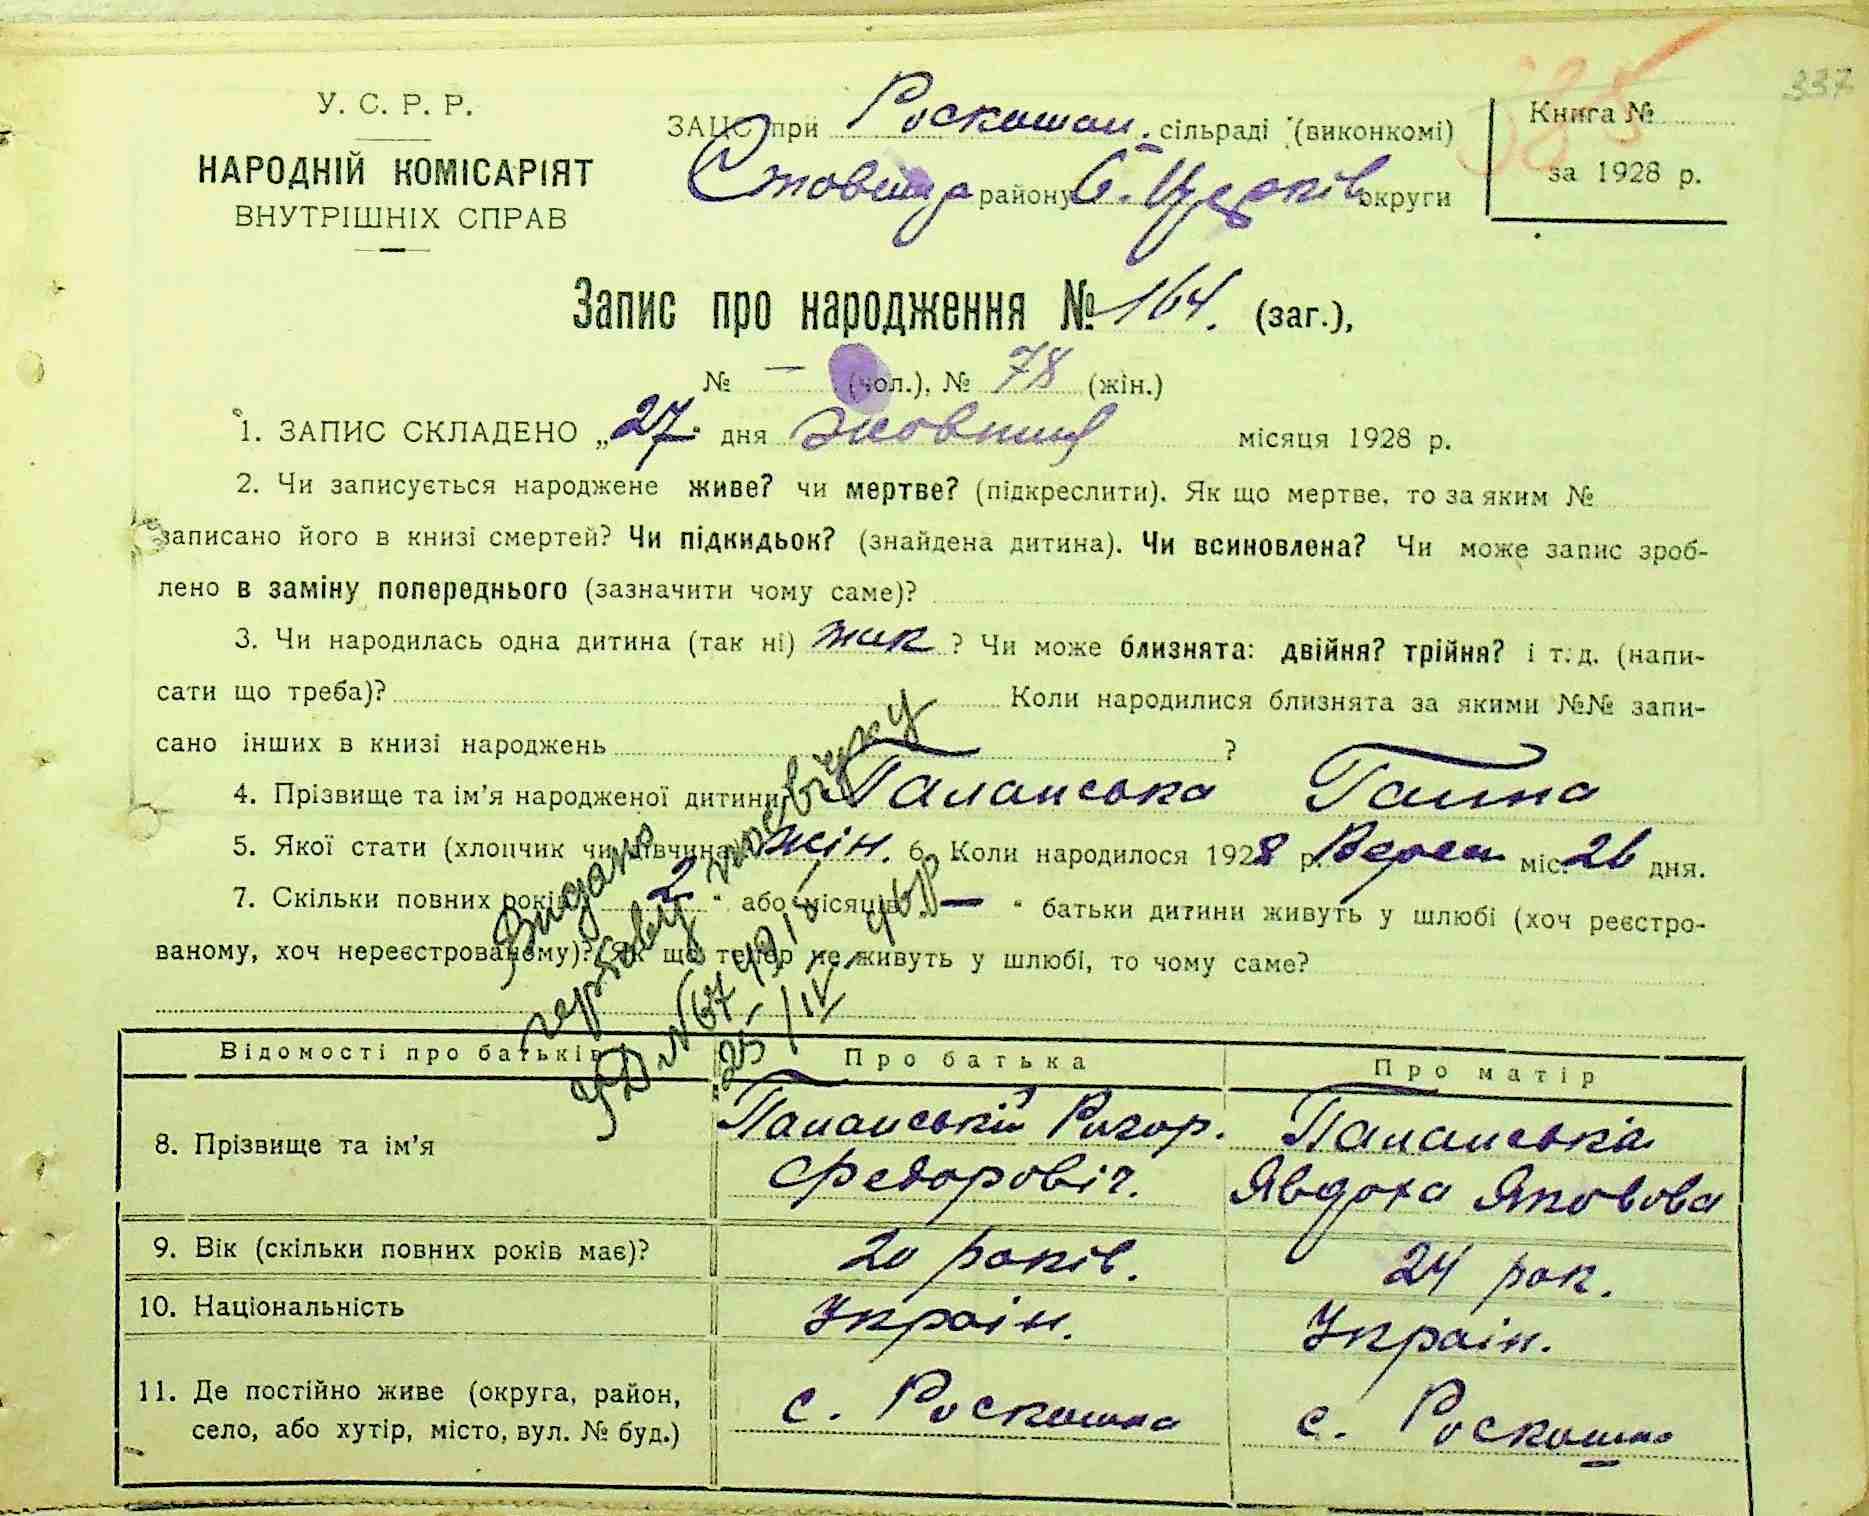 337
У. С. Р. Р.
НАРОДНІЙ КОМІСАРІЯТ
ВНУТРІШНІХ СПРАВ
ЗАЦС при Роскошан. сільраді (виконкомі)
району Б. Церків округи
Книга №
за 1928 р.
Запис про народження № 164. (заг.),
№ — (чол.), № 78 (жін.)
1. ЗАПИС СКЛАДЕНО „27" дня жовтня місяця 1928 р.
2. Чи записується народжене живе? чи мертве? (підкреслити). Як що мертве, то за яким №
записано його в книзі смертей? Чи підкидьок? (знайдена дитина). Чи всиновлена? Чи може запис зроб-
лено в заміну попереднього (зазначити чому саме)?
3. Чи народилась одна дитина (так ні) так ? Чи може близнята: двійня? трійня? і т. д. (напи-
сати що треба)? Коли народилися близнята за якими №№ запи-
сано інших в книзі народжень ?
4. Прізвище та ім'я народженої дитини Паланська Ганна
5. Якої стати (хлопчик чи дівчина) жін. 6. Коли народилося 1928 р. Верес міс. 26 дня.
7. Скільки повних років „ 2 " або місяців „ — " батьки дитини живуть у шлюбі (хоч реєстро-
ваному, хоч нереєстрованому)? Як що тепер не живуть у шлюбі, то чому саме?
Видано
гербову посвідку
25/IV
Відомості про батьків
Про батька
Про матір
8. Прізвище та ім'я
Паланській Ригор.
Федоровіч.
Паланська
Явдоха Яковова
9. Вік (скільки повних років має)?
20 років.
24 рок.
10. Національність
Україн.
Україн.
11. Де постійно живе (округа, район,
село, або хутір, місто, вул. № буд.)
с. Роскошна
с. Роскошна